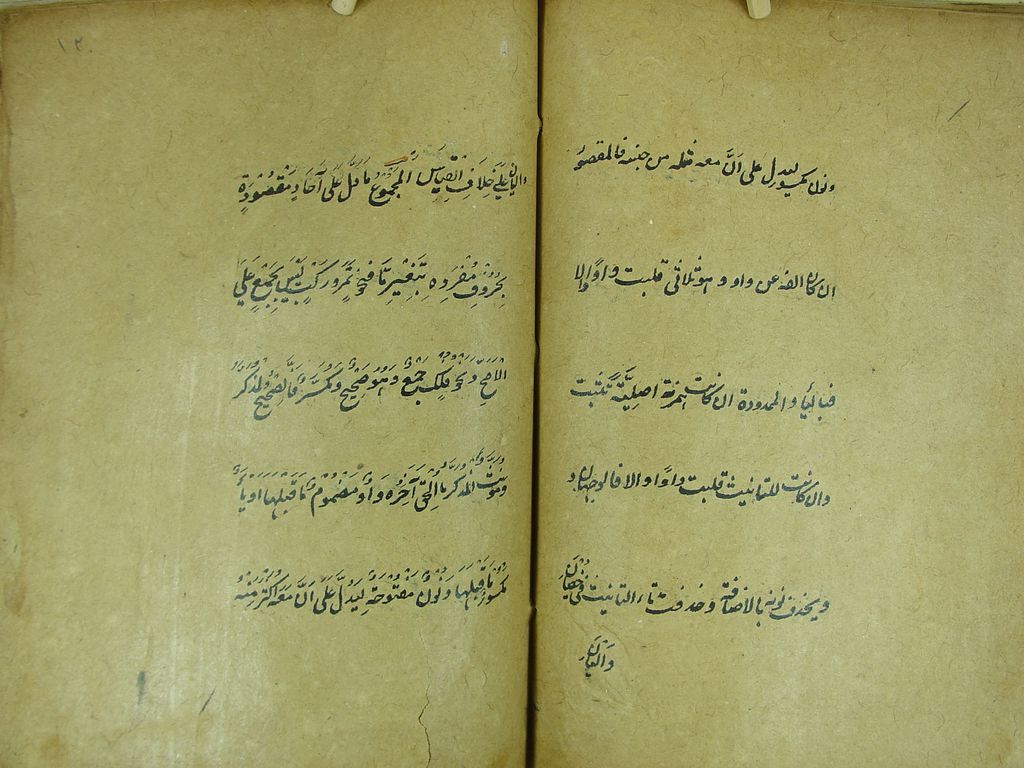 ونون مكسورة ليدل على انَّ معه مثله من جنسه فالمقصور
ان كان الفه عن واو وهو ثلاثي قلبت واوًا والا
فبالياء والممدودة ان كانت همزته اصليَّةً تثبت
وان كانت للتانيث قلبت واوًا والا فالوجهان و
ويحذف نونه بالاضافة وحذفت تاء التانيث في خصيان
واليان
١٢
واليان على خلاف القياس المجموع ما دل على آحاد مقصودة
بحروف مفرده بتغيير ما فنحو تمر وركب ليس بجمع على
الاصح ونحو فلك جمع وهو صحيح ومكسر فالصحيح لمذكر
ومؤنث المذكر ما لحق آخره واو مضموم ما قبلها او ياء
مكسور ما قبلها ونون مفتوحة ليدل على ان معه اكثر منه